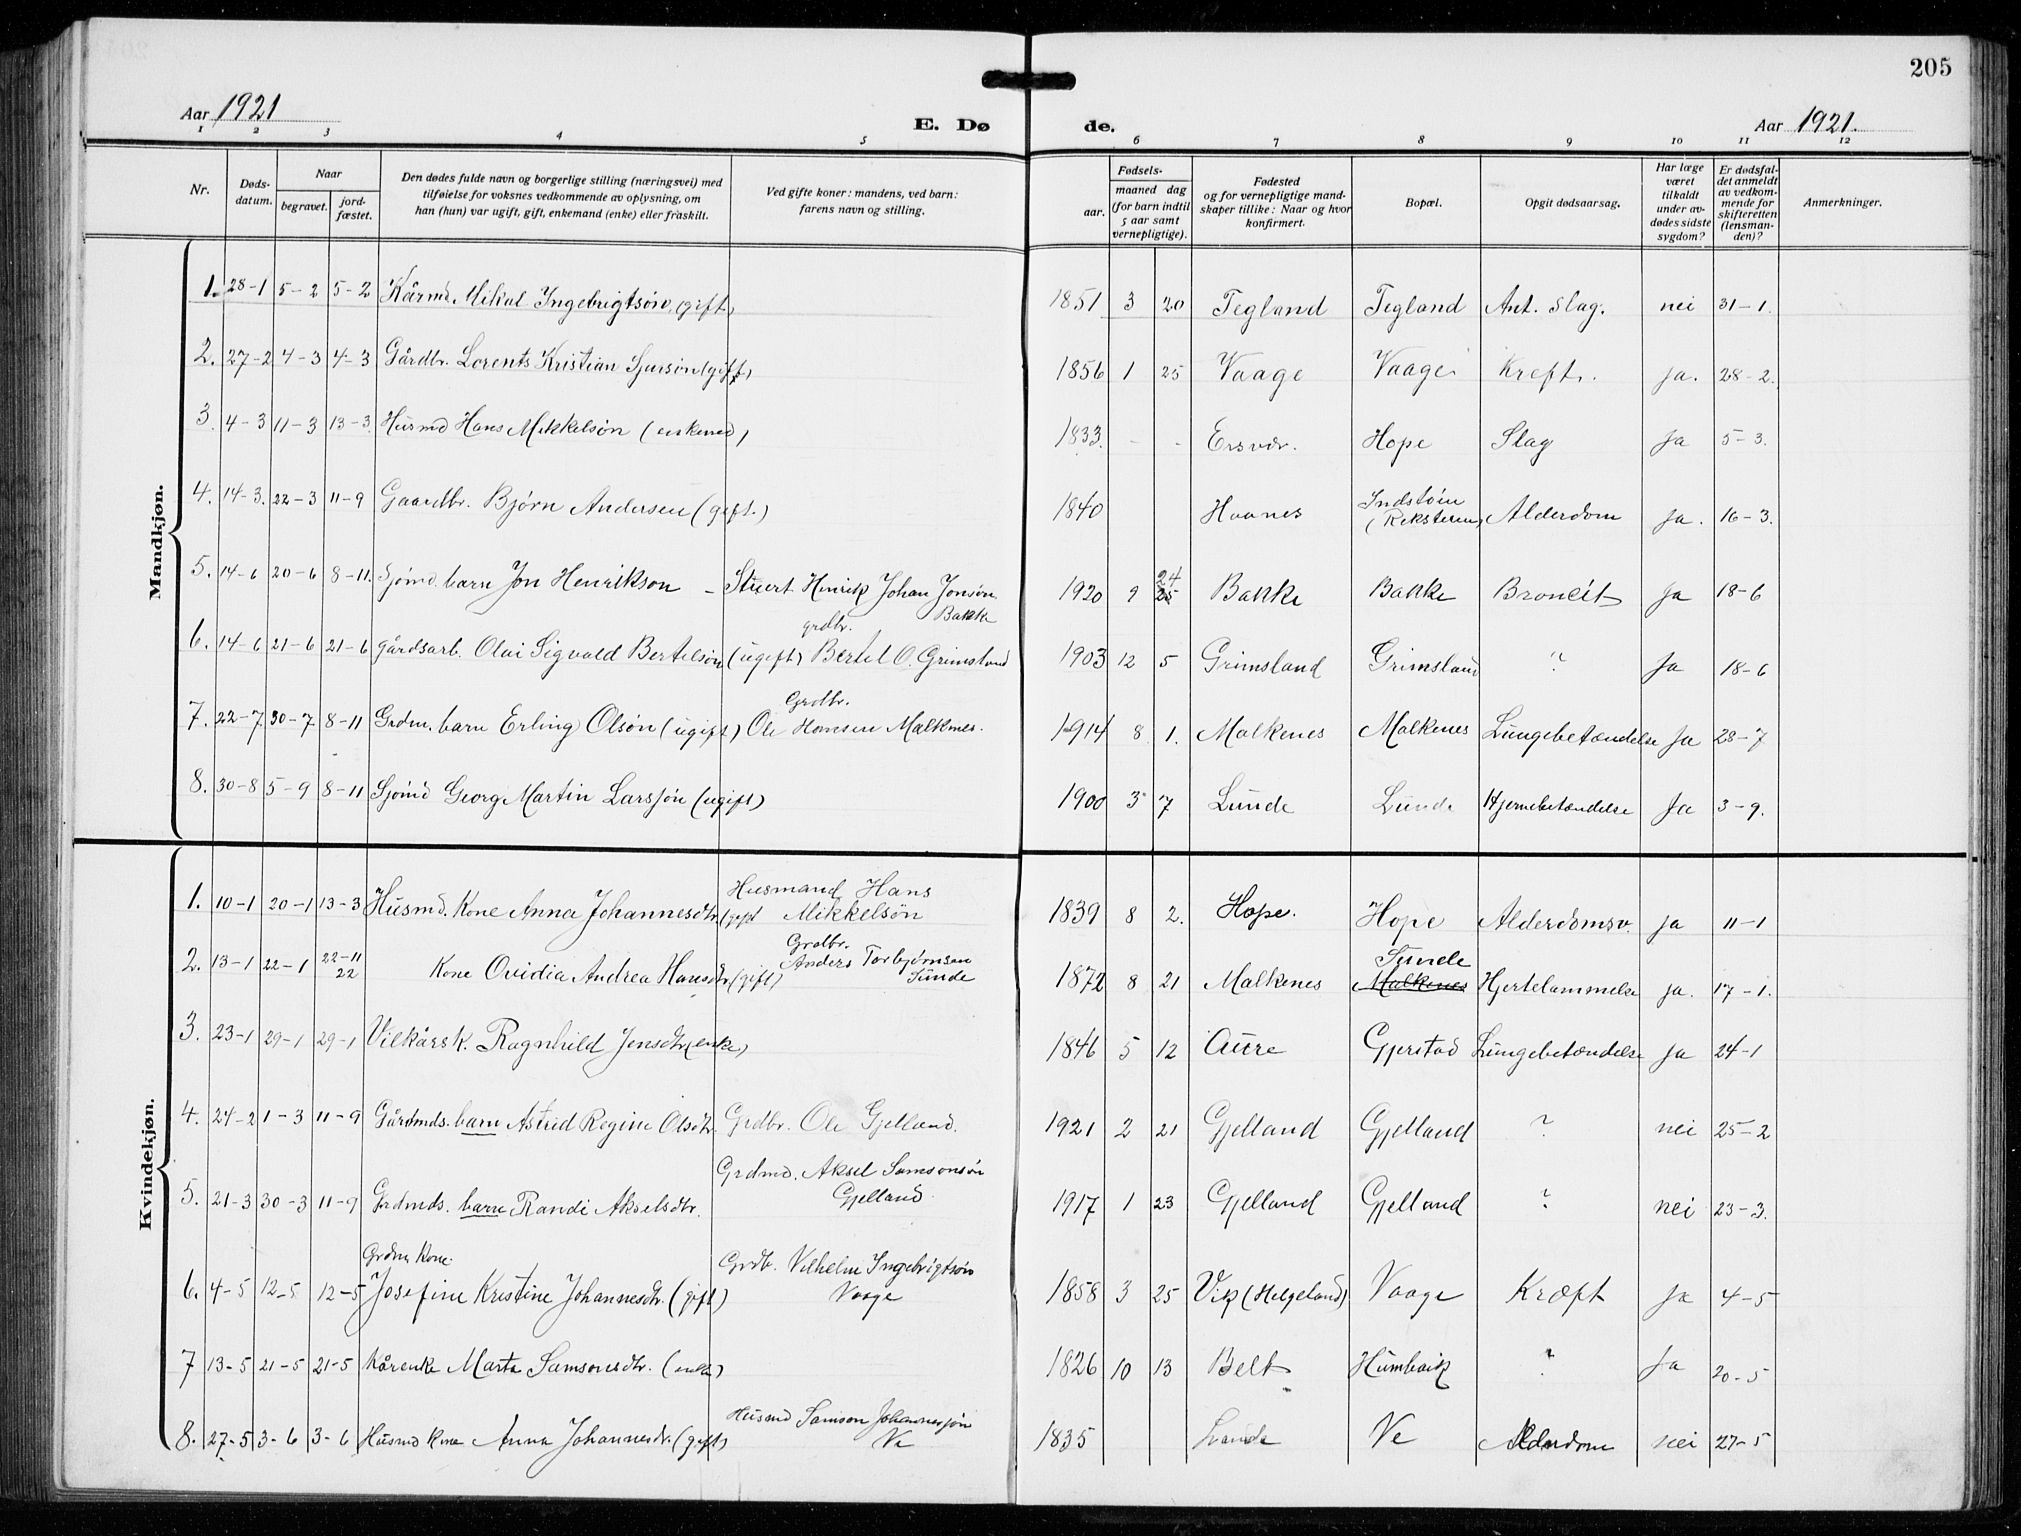 205
Aar 1921
E. Dø
de.
Aar 1921.
1 2 3 4 5 6 7 8 9 10 11 12
Nr. Døds-datum. Naar begravet. jord-fæstet. Den dødes fulde navn og borgerlige stilling (næringsvei) med tilføielse for voksnes vedkommende av oplysning, om han (hun) var ugift, gift, enkemand (enke) eller fraskilt. Ved gifte koner: mandens, ved barn: farens navn og stilling. Fødsels- aar. maaned dag (for barn indtil 5 aar samt vernepligtige). Fødested og for vernepligtige mandskaper tillike: Naar og hvor konfirmert. Bopæl. Opgit dødsaarsag. Har læge været tilkaldt under avdødes sidste sygdom? Er dødsfaldet anmeldt av vedkommende for skifteretten (lensmanden)? Anmerkninger.
Mandkjøn.
1. 28-1 5-2 5-2 Kårmd. Mikal Ingebrigtsøn (gift) 1851 3 20 Tegland Tegland Ant. Slag. nei 31-1.
2. 27-2 4-3 4-3 Gårdbr. Lorents Kristian Sjursøn (gift) 1856 1 25 Vaage Vaage Kreft. ja. 28-2.
3. 4-3 11-3 13-3. Husmd Hans Mikkelsøn (enkemd) 1833. - - Ersvær. Hope Slag Ja 5-3.
4. 14-3. 22-3 11-9 Gaardbr. Bjørn Andersen (gift.) 1840 Haanes Indstøen (Reksteren) Alderdom Ja. 16-3.
5. 14-6 20-6 8-11. Sjømd. barn Jon Henrikson - Stuert Henrik Johan Jonsøn Bakke 1920 9 24 25 Bakke Bakke Broncit Ja 18-6
6. 14-6 21-6 21-6 gårdsarb. Olai Sigvald Bertelsøn (ugift) grdbr. Bertel O. Grimsland 1903 12 5 Grimsland Grimsland ? Ja 18-6
7. 22-7 30-7 8-11 Grdm. barn Erling Olsøn (ugift) Grdbr. Ole Hansen Malkenes. 1914 8 1. Malkenes Malkenes Lungebetændelse Ja 28-7
8. 30-8 5-9 8-11 Sjømd Georg Martin Larssøn (ugift) 1900 3 7 Lunde Lunde Hjernebetændelse Ja 3-9.
Kvindekjøn.
1. 10-1 20-1 13-3 Husmd. Kone Anna Johannesdtr. (gift Husmand Hans Mikkelsøn 1839 8 2. Hope. Hope Alderdomsv. ja 11-1
2. 13-1 22-1 22-11 22 Kone Ovidia Andrea Hansdtr. (gift) Grdbr. Anders Torbjørnsen Sunde 1872 8 21 Malkenes Sunde Malkenes Hjertelammelse ja. 17-1.
3. 23-1 29-1 29-1 Vilkårsk. Ragnhild Jensdtr (enke) 1846 5 12 Aure Gjerstad Lungebetændelse ja 24-1
4. 24-2 1-3 11-9 Gårdmds. barn Astrid Regine Olsdtr. Grdbr. Ole Gjelland. 1921 2 21 Gjelland Gjelland ? nei 25-2
5. 21-3 30-3 11-9 Grdmds. barn Randi Akselsdtr. Grdmd. Aksel Samsonsøn Gjelland. 1917 1 23 Gjelland Gjelland ? nei 23-3.
6. 4-5 12-5 12-5 Grdm Kone. Josefine Kristine Johannesdtr. (gift) Grdb. Vilhelm Ingebrigtsøn Vaage 1858 3 25 Vik (Helgeland) Vaage Kræft ja 4-5
7 13-5 21-5 21-5 Kårenke Marta Samsonsdtr. (enke) 1826 10 13 Belt Humbaik ? Ja 20-5
8. 27-5 3-6 3-6 Husmd Kone Anna Johannesdr. (gift) Husmd Samson Johannessøn Ve 1835 Ve Alderdom nei 27-5